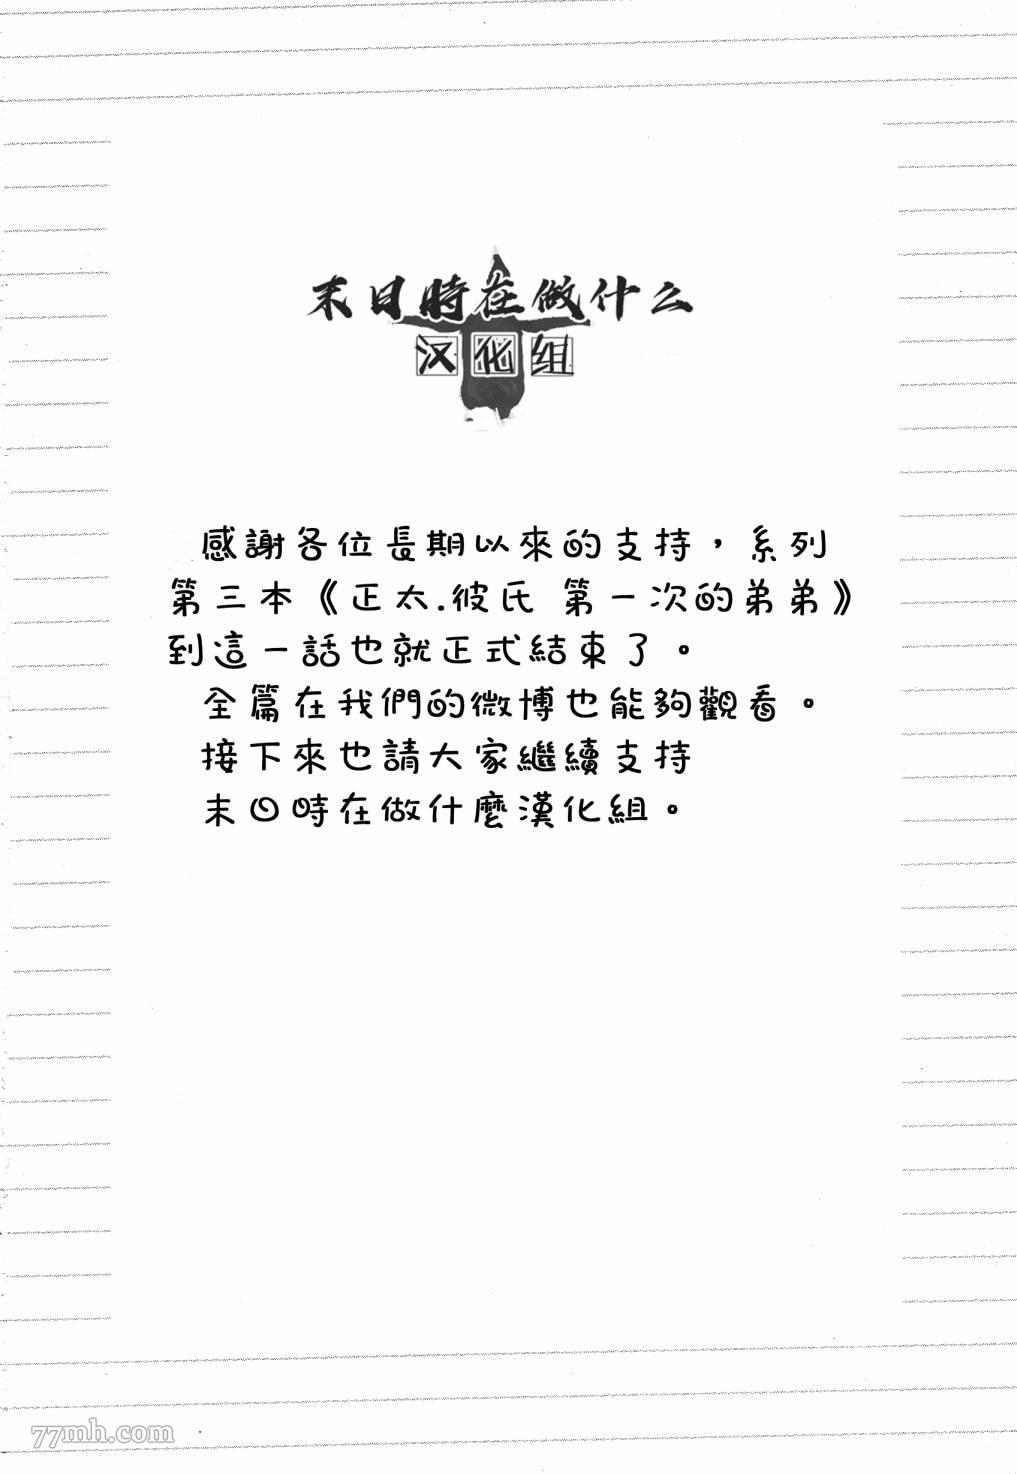 末日時在做什么
汉化组
感謝各位長期以來的支持，系列
第三本《正太.彼氏 第一次的弟弟》
到這一話也就正式結束了。
全篇在我們的微博也能夠觀看。
接下來也請大家繼續支持
末日時在做什麼漢化組。
77mh.com